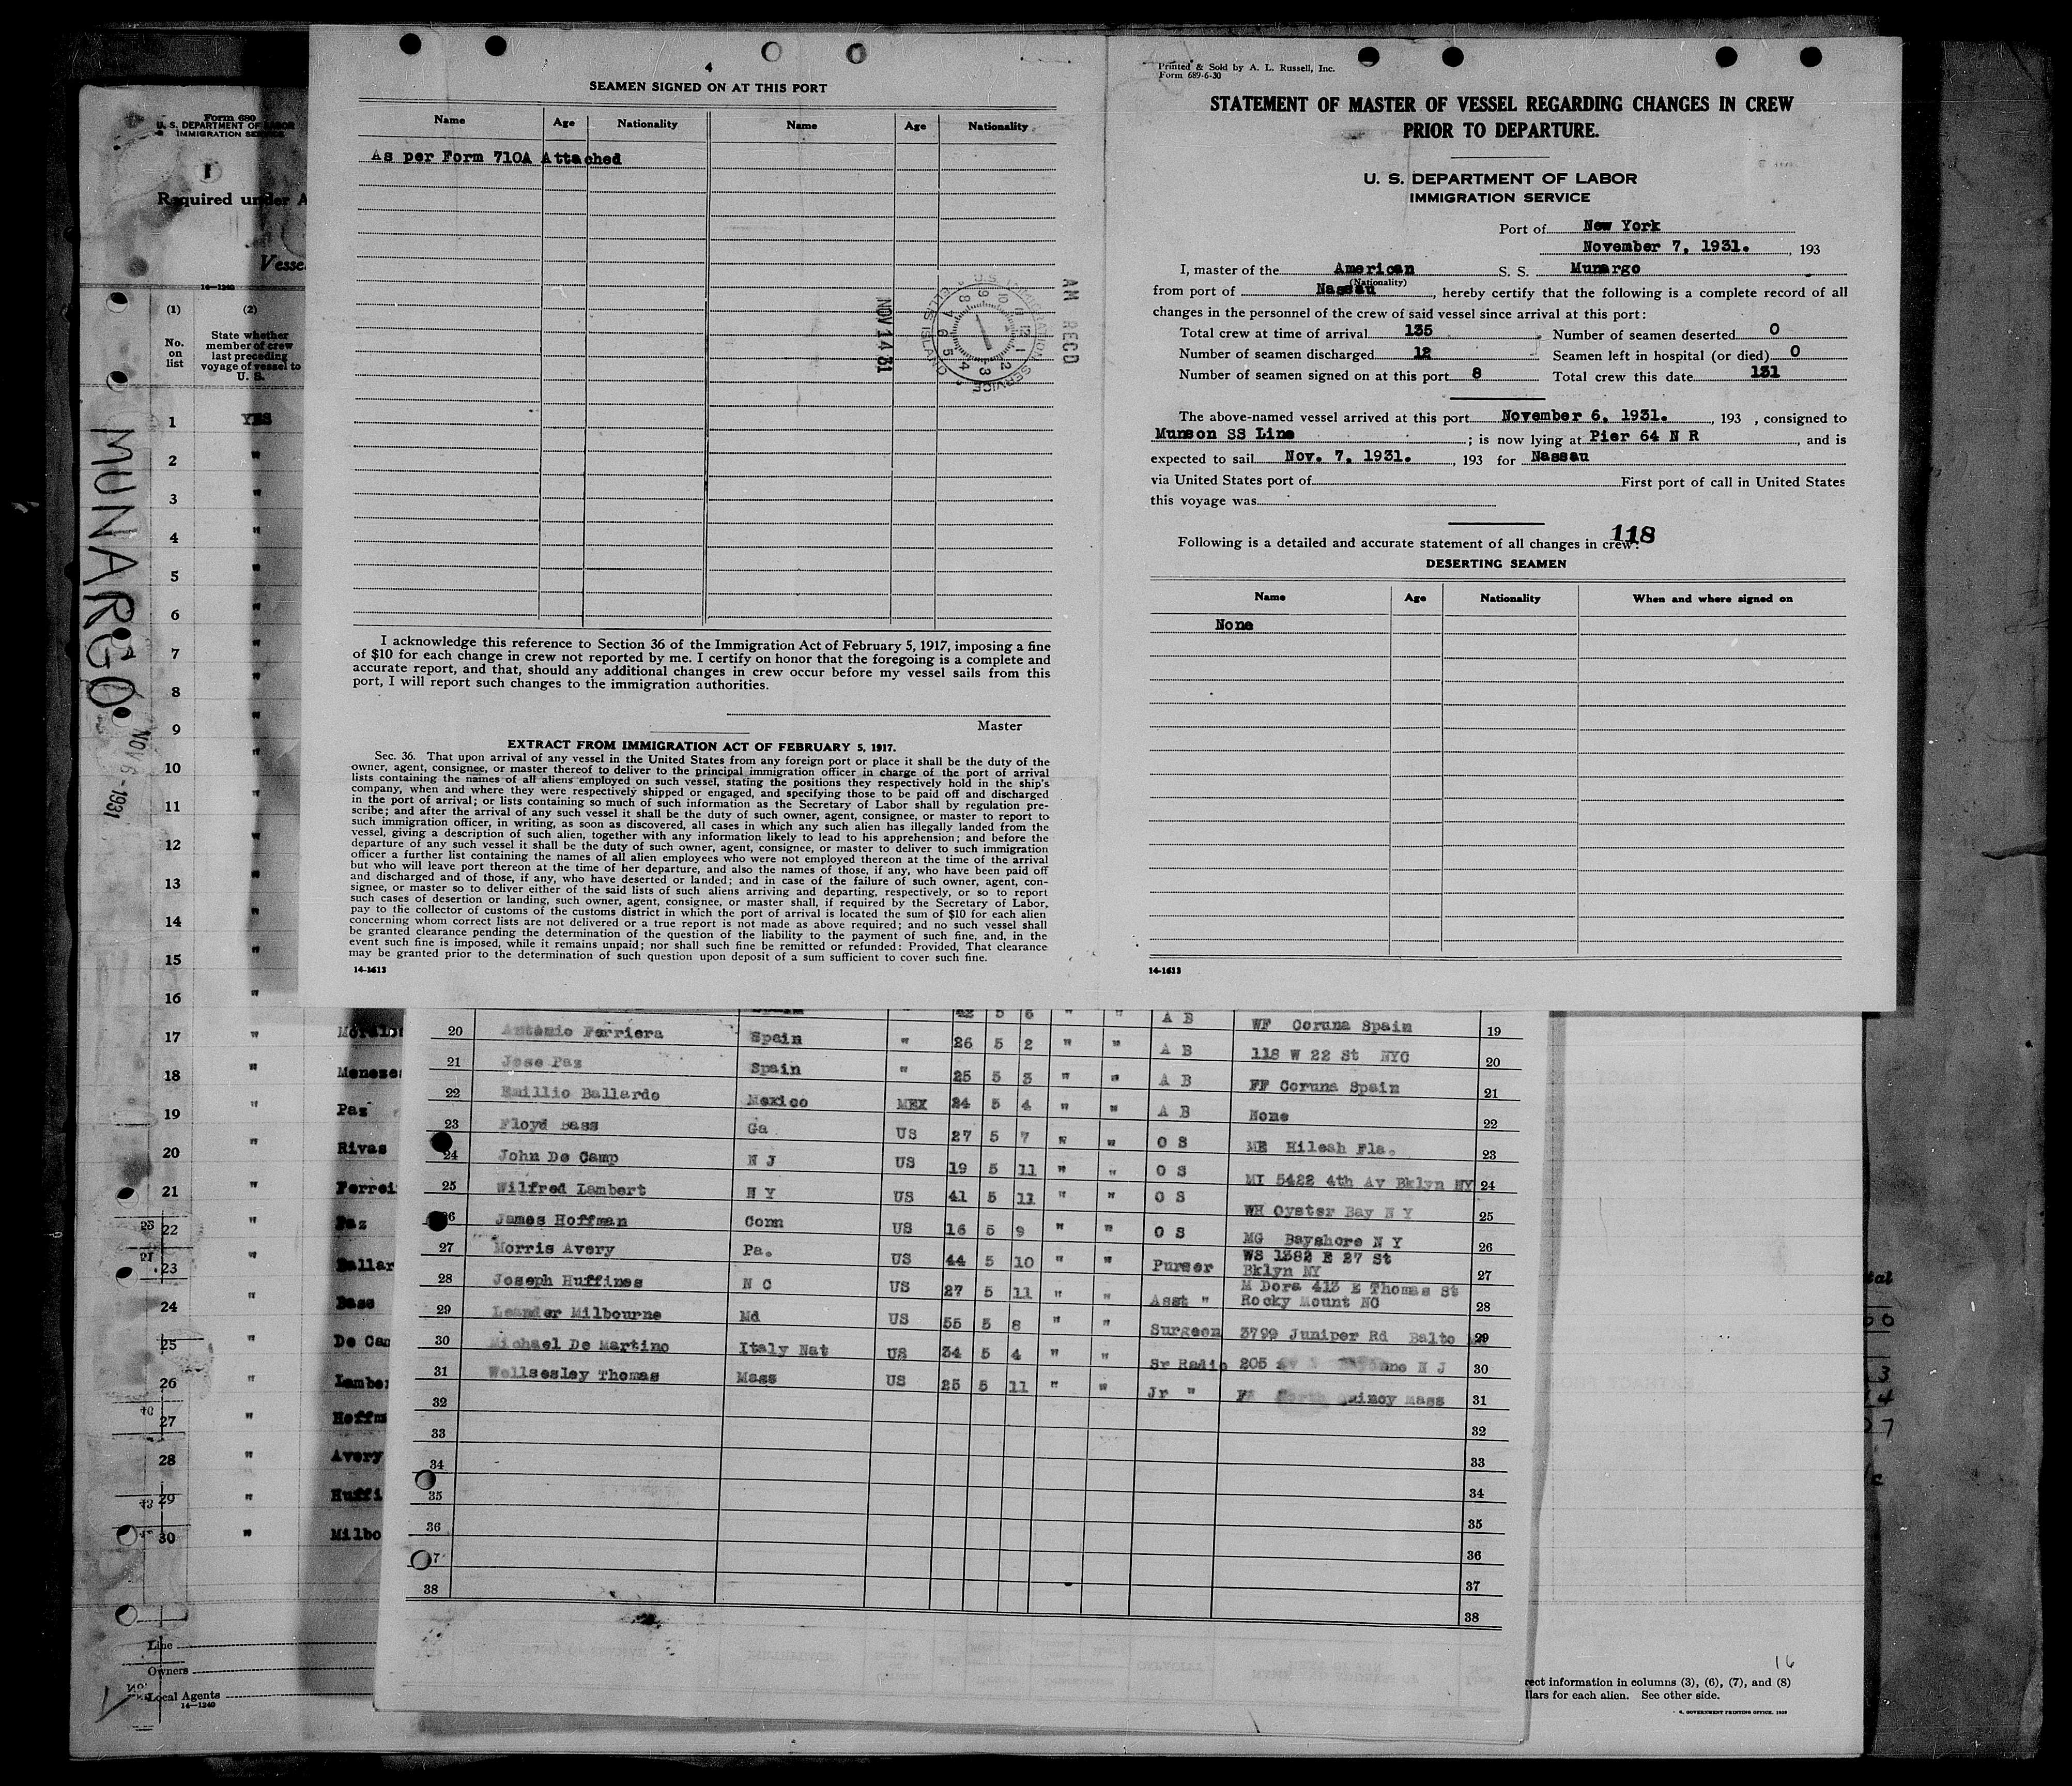 4
SEAMEN SIGNED ON AT THIS PORT
Name Age Nationality Name Age Nationality
As per Form 710A Attached
U.S. IMMIGRATION SERVICE ELLIS ISLAND
NOV 14 31
AM RECD
I acknowledge this reference to Section 36 of the Immigration Act of February 5, 1917, imposing a fine
of $10 for each change in crew not reported by me. I certify on honor that the foregoing is a complete and
accurate report, and that, should any additional changes in crew occur before my vessel sails from this
port, I will report such changes to the immigration authorities.
Master
EXTRACT FROM IMMIGRATION ACT OF FEBRUARY 5, 1917.
Sec. 36. That upon arrival of any vessel in the United States from any foreign port or place it shall be the duty of the
owner, agent, consignee, or master thereof to deliver to the principal immigration officer in charge of the port of arrival
lists containing the names of all aliens employed on such vessel, stating the positions they respectively hold in the ship's
company, when and where they were respectively shipped or engaged, and specifying those to be paid off and discharged
in the port of arrival; or lists containing so much of such information as the Secretary of Labor shall by regulation pre-
scribe; and after the arrival of any such vessel it shall be the duty of such owner, agent, consignee, or master to report to
such immigration officer, in writing, as soon as discovered, all cases in which any such alien has illegally landed from the
vessel, giving a description of such alien, together with any information likely to lead to his apprehension; and before the
departure of any such vessel it shall be the duty of such owner, agent, consignee, or master to deliver to such immigration
officer a further list containing the names of all alien employees who were not employed thereon at the time of the arrival
but who will leave port thereon at the time of her departure, and also the names of those, if any, who have been paid off
and discharged and of those, if any, who have deserted or landed; and in case of the failure of such owner, agent, con-
signee, or master so to deliver either of the said lists of such aliens arriving and departing, respectively, or so to report
such cases of desertion or landing, such owner, agent, consignee, or master shall, if required by the Secretary of Labor,
pay to the collector of customs of the customs district in which the port of arrival is located the sum of $10 for each alien
concerning whom correct lists are not delivered or a true report is not made as above required; and no such vessel shall
be granted clearance pending the determination of the question of the liability to the payment of such fine, and, in the
event such fine is imposed, while it remains unpaid; nor shall such fine be remitted or refunded: Provided, That clearance
may be granted prior to the determination of such question upon deposit of a sum sufficient to cover such fine.
14-1613
Printed & Sold by A. L. Russell, Inc.
Form 689-6-30
STATEMENT OF MASTER OF VESSEL REGARDING CHANGES IN CREW
PRIOR TO DEPARTURE.
U. S. DEPARTMENT OF LABOR
IMMIGRATION SERVICE
Port of New York
November 7, 1931. , 193
I, master of the American S. S. Munargo
(Nationality)
from port of Nassau, hereby certify that the following is a complete record of all
changes in the personnel of the crew of said vessel since arrival at this port:
Total crew at time of arrival 135 Number of seamen deserted 0
Number of seamen discharged 12 Seamen left in hospital (or died) 0
Number of seamen signed on at this port 8 Total crew this date 131
The above-named vessel arrived at this port November 6, 1931. , 193 , consigned to
Munson SS Line ; is now lying at Pier 64 N R , and is
expected to sail Nov. 7, 1931. , 193 for Nassau
via United States port of First port of call in United States
this voyage was
118
Following is a detailed and accurate statement of all changes in crew:
DESERTING SEAMEN
Name Age Nationality When and where signed on
None
14-1613
Form 680
U. S. DEPARTMENT OF LABOR
IMMIGRATION SERVICE
1
Required under A
Vesse
14-1240
(1) (2)
No. on list
State whether member of crew last preceding voyage of vessel to U. S.
MUNARGO
NOV 6 - 1931
1 YES
2 "
3 "
4 "
5 "
6 "
7 "
8 "
9 "
10 "
11 "
12 "
13 "
14 "
15 "
16 "
17 "
18 " Menezes
19 " Paz
20 " Rivas
21 " Ferrei
22 " Paz
23 " Ballar
24 " Bass
25 " De Cam
26 " Lamber
27 " Hoffm
28 " Avery
29 " Huffi
30 " Milbo
Line
Owners
Local Agents
14-1240
42 5 6 " " A B WF Coruna Spain 19
20 Antonio Ferriera Spain " 26 5 2 " " A B 118 W 22 St NYC 20
21 Jose Paz Spain " 25 5 3 " " A B FF Coruna Spain 21
22 Emillio Ballardo Mexico MEX 24 5 4 " " A B None 22
23 Floyd Bass Ga US 27 5 7 " " O S ME Hileah Fla. 23
24 John De Camp N J US 19 5 11 " " O S MI 5422 4th Av Bklyn NY 24
25 Wilfred Lambert N Y US 41 5 11 " " O S WH Oyster Bay N Y 25
26 James Hoffman Conn US 16 5 9 " " O S MG Bayshore N Y 26
27 Morris Avery Pa. US 44 5 10 " " Purser WS 1382 E 27 St Bklyn NY 27
28 Joseph Huffines N C US 27 5 11 " " Asst " M Dora 413 E Thomas St Rocky Mount NC 28
29 Leander Milbourne Md US 55 5 8 " " Surgeon 3799 Juniper Rd Balto 29
30 Michael De Martino Italy Nat US 34 5 4 " " Sr Radio 205 N J 30
31 Wellsesley Thomas Mass US 25 5 11 " " Jr " North Quincy Mass 31
32 32
33 33
34 34
35 35
36 36
37 37
38 38
16
rect information in columns (3), (6), (7), and (8)
llars for each alien. See other side.
GOVERNMENT PRINTING OFFICE